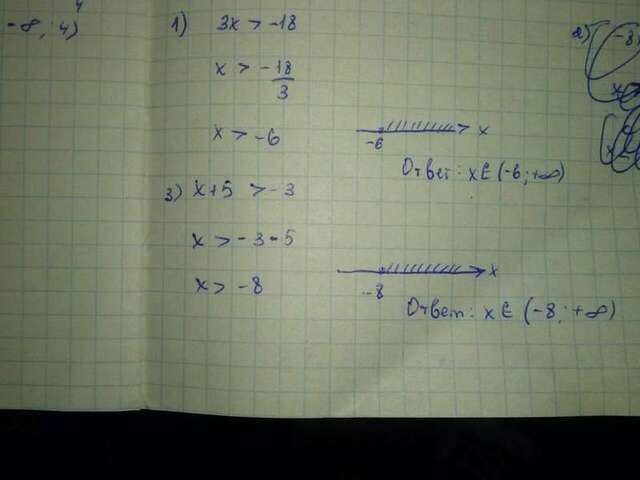 4
-8; 4)
1) 3x > -18
x > -18/3
x > -6
-6 x
Ответ: x ∈ (-6; +∞)
3) x+5 > -3
x > -3-5
x > -8
-8 x
Ответ: x ∈ (-8; +∞)
2)
-8